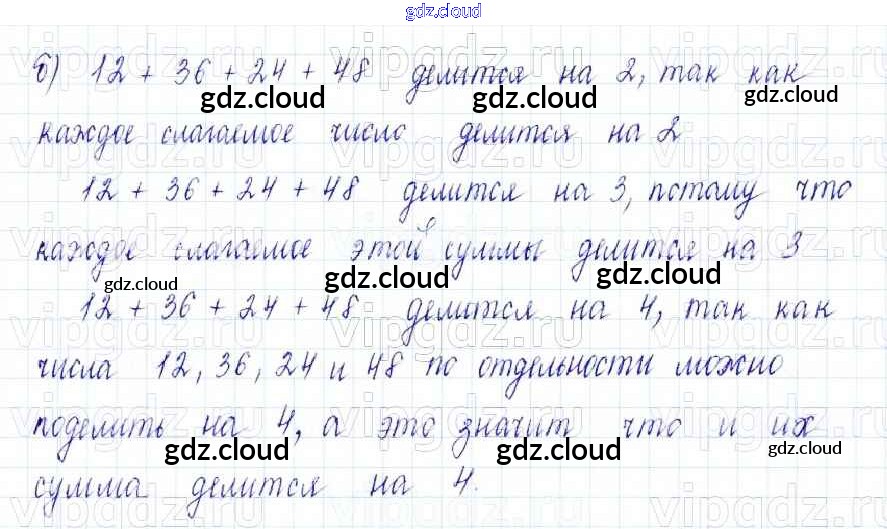 gdz.cloud
б) 12 + 36 + 24 + 48 делится на 2, так как
gdz.cloud gdz.cloud gdz.cloud
каждое слагаемое число делится на 2
12 + 36 + 24 + 48 делится на 3, потому что
каждое слагаемое этой суммы делится на 3
gdz.cloud gdz.cloud gdz.cloud
12 + 36 + 24 + 48 делится на 4, так как
числа 12, 36, 24 и 48 по отдельности можно
поделить на 4, а это значит что и их
gdz.cloud gdz.cloud gdz.cloud
сумма делится на 4.